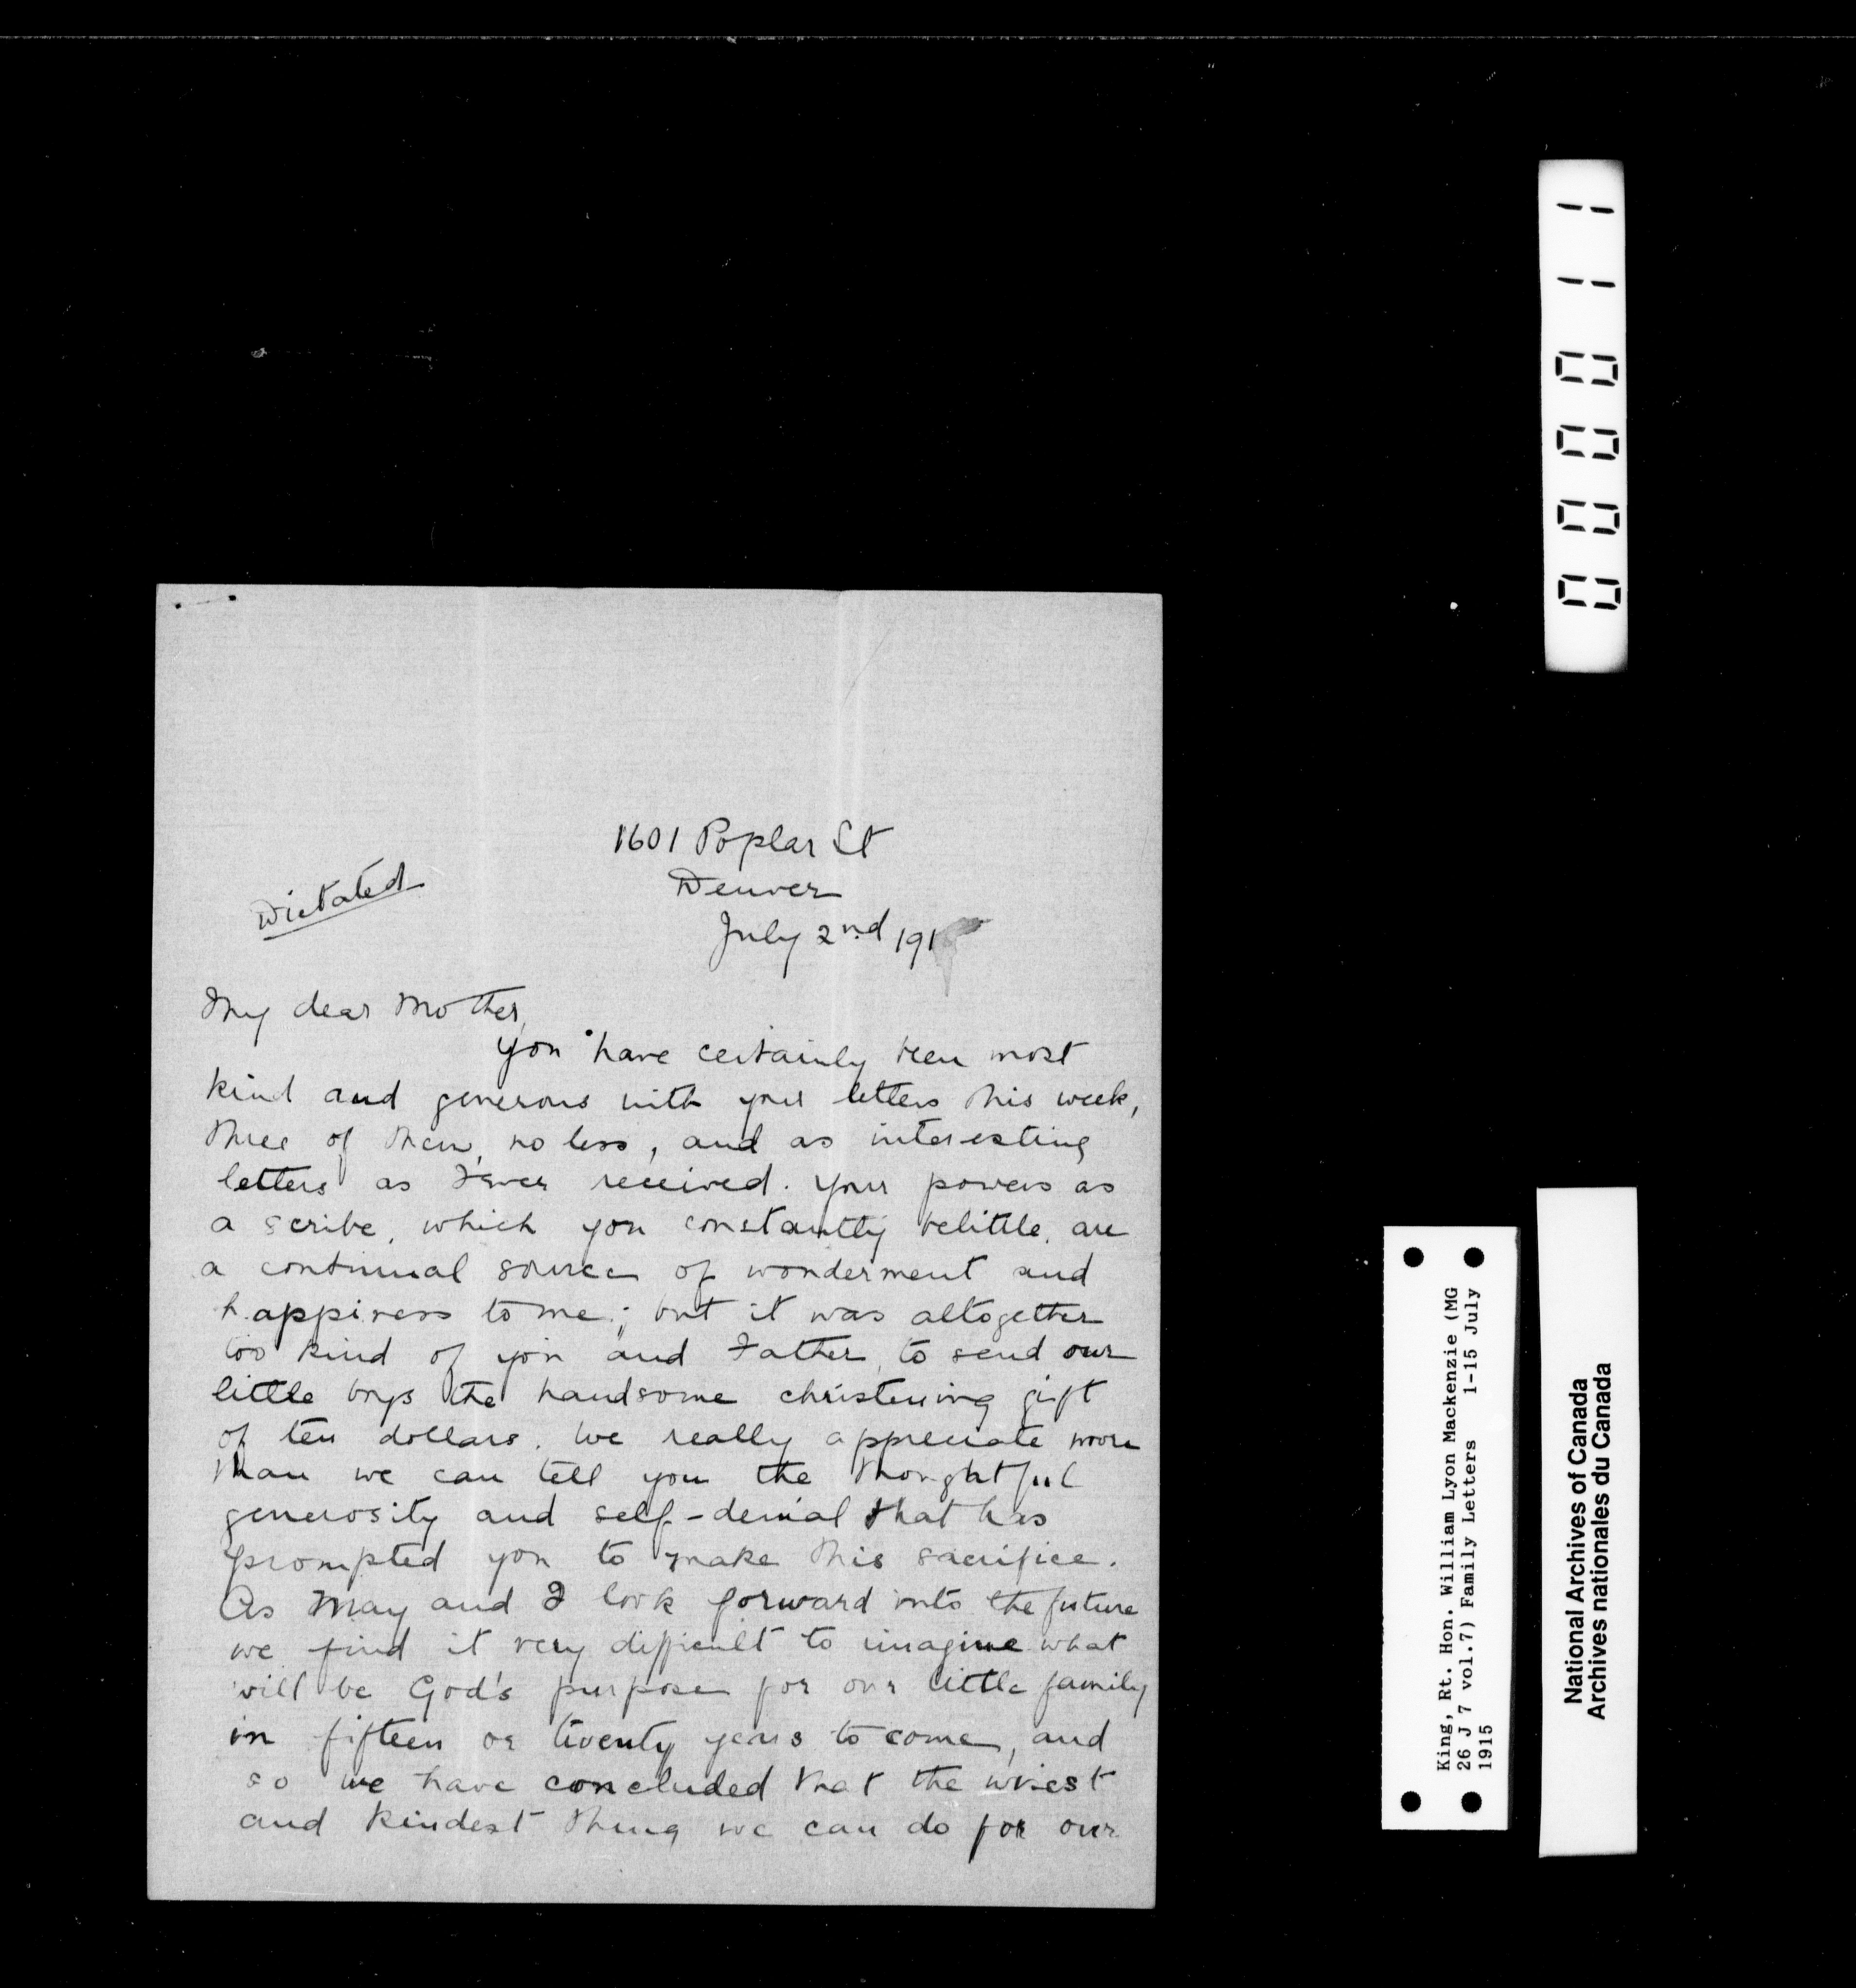 1601 Poplar St
Denver
Dictated
July 2nd 191
My dear Mother,
You have certainly been most
kind and generous with your letters this week,
three of them, no less, and as interesting
letters as I ever received. Your powers as
a scribe, which you constantly belittle, are
a continual source of wonderment and
happiness to me; but it was altogether
too kind of you and Father, to send our
little boys the handsome christening gift
of ten dollars. We really appreciate more
than we can tell you the thoughtful
generosity and self-denial that has
prompted you to make this sacrifice.
As May and I look forward into the future
we find it very difficult to imagine what
will be God's purpose for our little family
in fifteen or twenty years to come, and
so we have concluded that the wisest
and kindest thing we can do for our
000011
King, Rt. Hon. William Lyon Mackenzie (MG
26 J 7 vol.7) Family Letters 1-15 July
1915
National Archives of Canada
Archives nationales du Canada